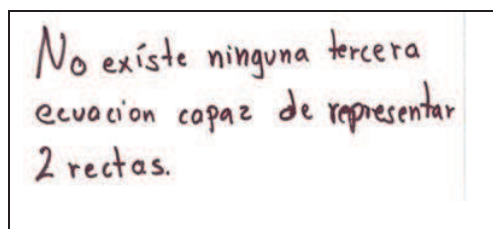 No existe ninguna tercera
ecuacion capaz de representar
2 rectas.